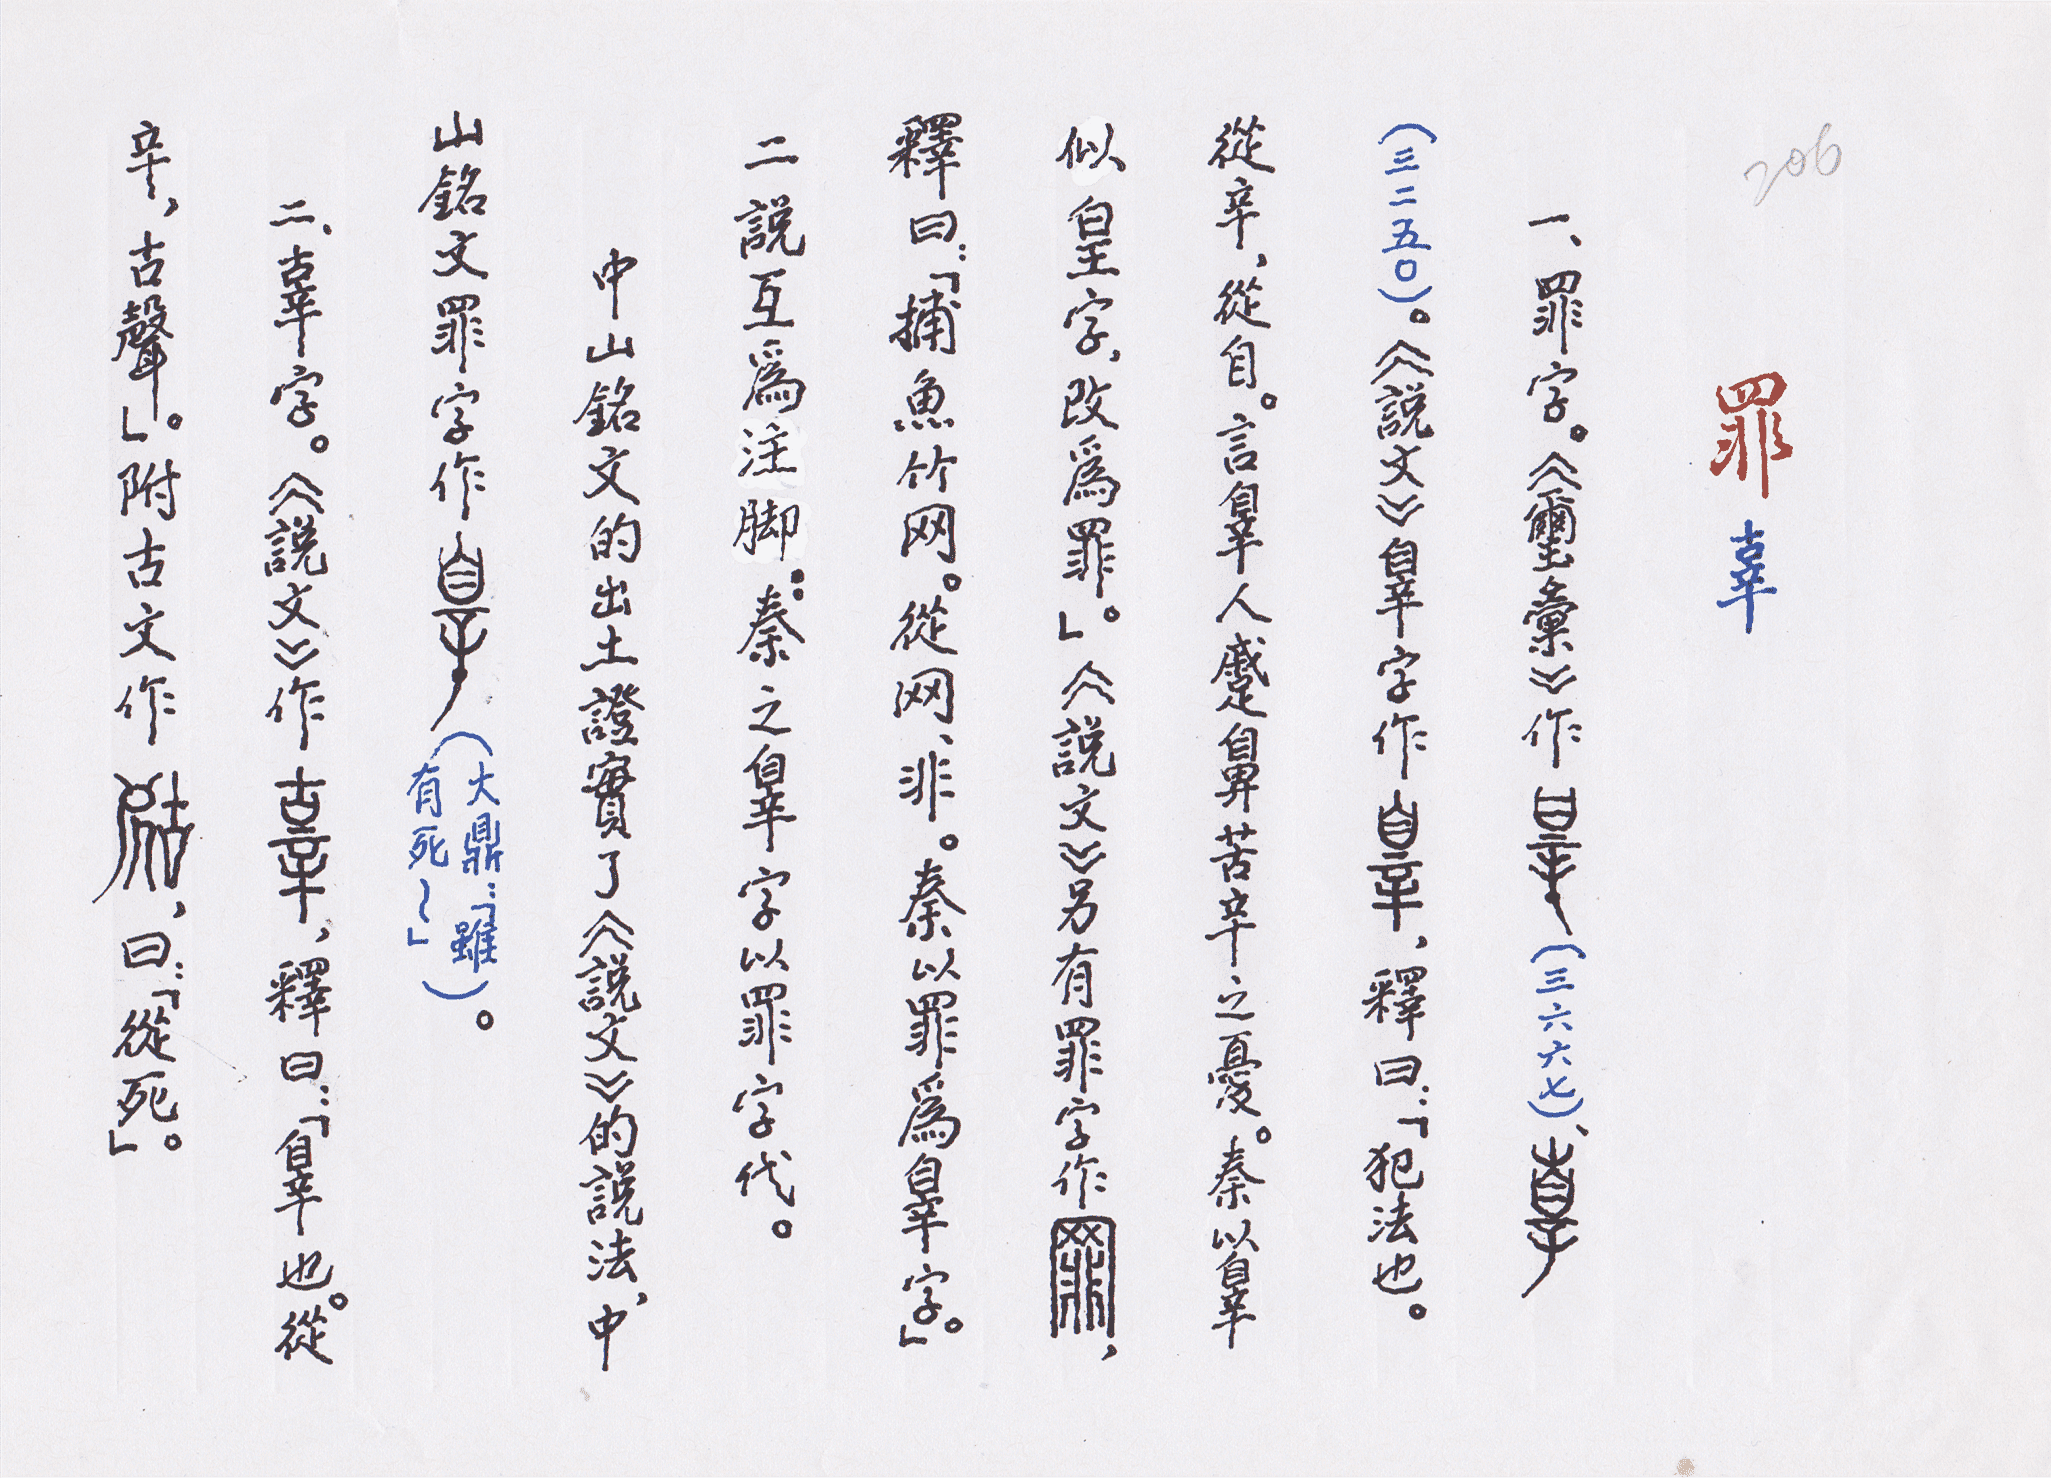 206
罪 辜
一、罪字。《璽彙》作(三六六七)、
(三二五〇)。《説文》辠字作，釋曰：「犯法也。
從辛，從自。言辠人蹙鼻苦辛之憂。秦以辠
似皇字，改爲罪。」《説文》另有罪字作，
釋曰：「捕魚竹网。從网、非。秦以罪爲辠字。」
二説互爲注脚：秦之辠字以罪字代。
中山銘文的出土證實了《説文》的説法，中
山銘文罪字作(大鼎：「雖有死～」)。
二、辜字。《説文》作，釋曰：「辠也。從
辛，古聲」。附古文作，曰：「從死」。